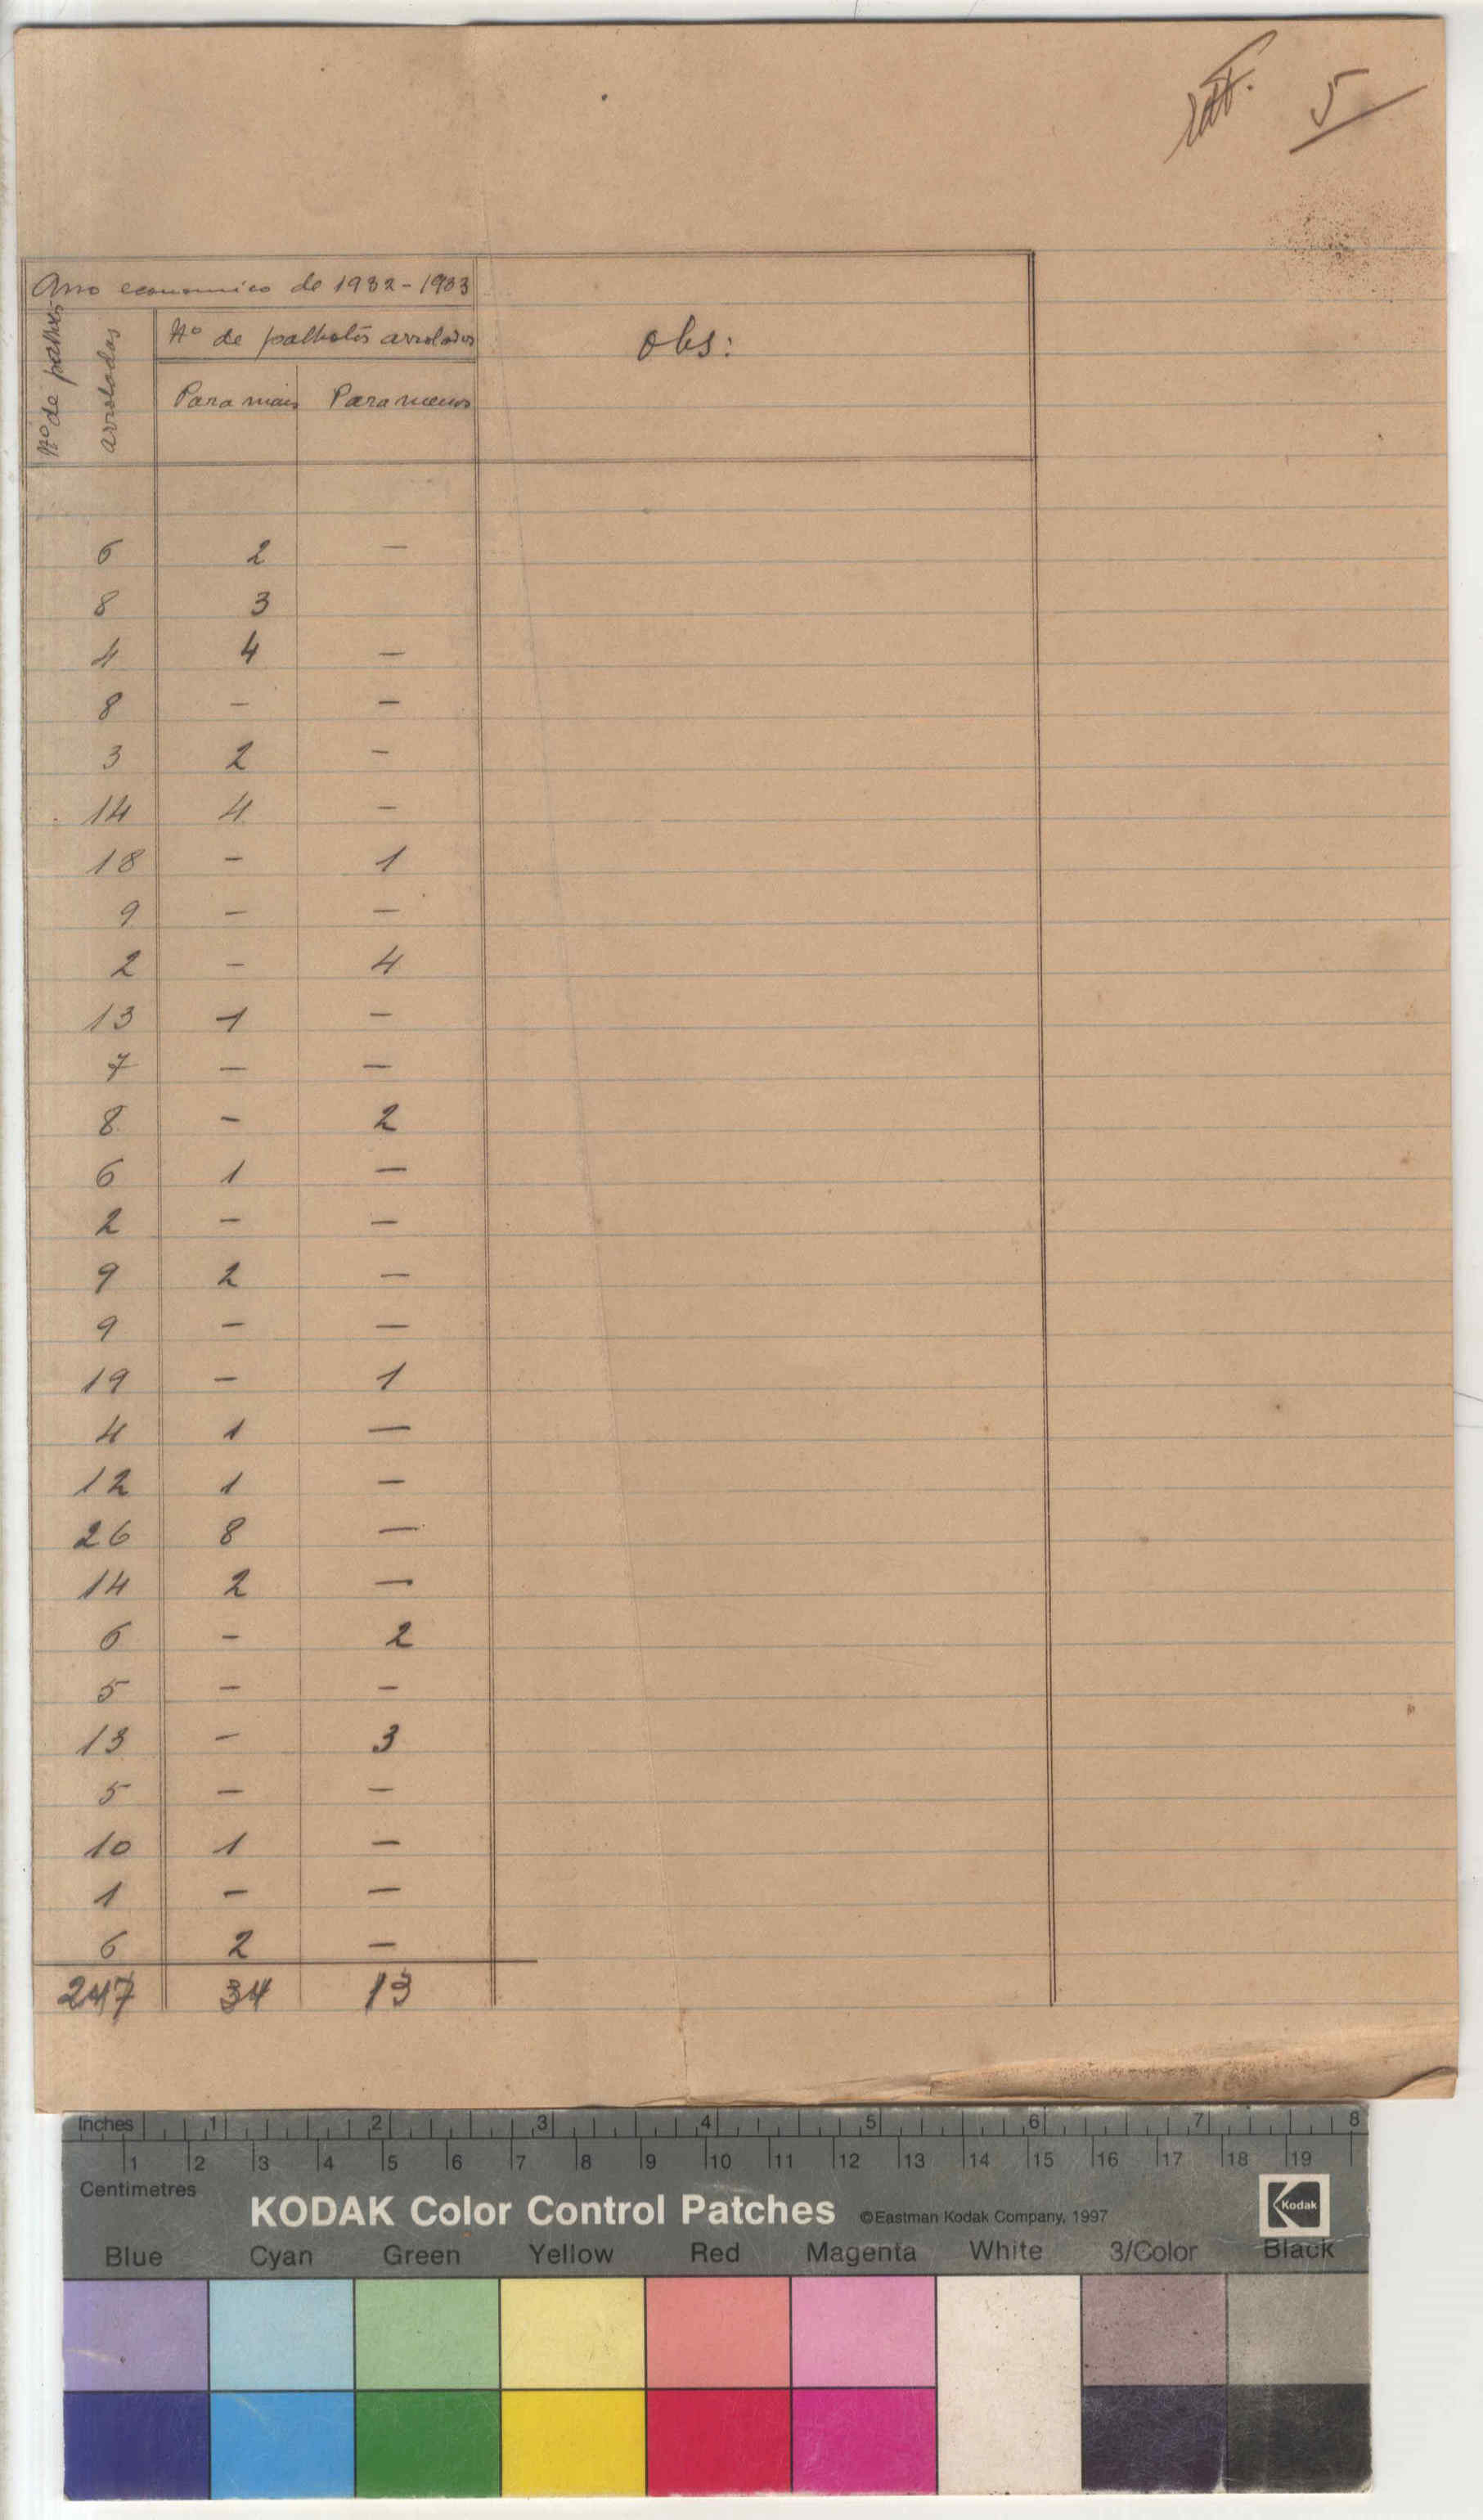 5
Ano economico de 1932-1933
Nº de palhotas arroladas
Nº de palhotas arroladas
Obs:
Para mais Para menos
6 2 —
8 3
4 4 —
8 — —
3 2 —
14 4 —
18 — 1
9 — —
2 — 4
13 1 —
7 — —
8 — 2
6 1 —
2 — —
9 2 —
9 — —
19 — 1
4 1 —
12 1 —
26 8 —
14 2 —
6 — 2
5 — —
13 — 3
5 — —
10 1 —
1 — —
6 2 —
247 34 13
Inches 1 2 3 4 5 6 7 8
1 2 3 4 5 6 7 8 9 10 11 12 13 14 15 16 17 18 19
Centimetres
KODAK Color Control Patches ©Eastman Kodak Company, 1997 Kodak
Blue Cyan Green Yellow Red Magenta White 3/Color Black